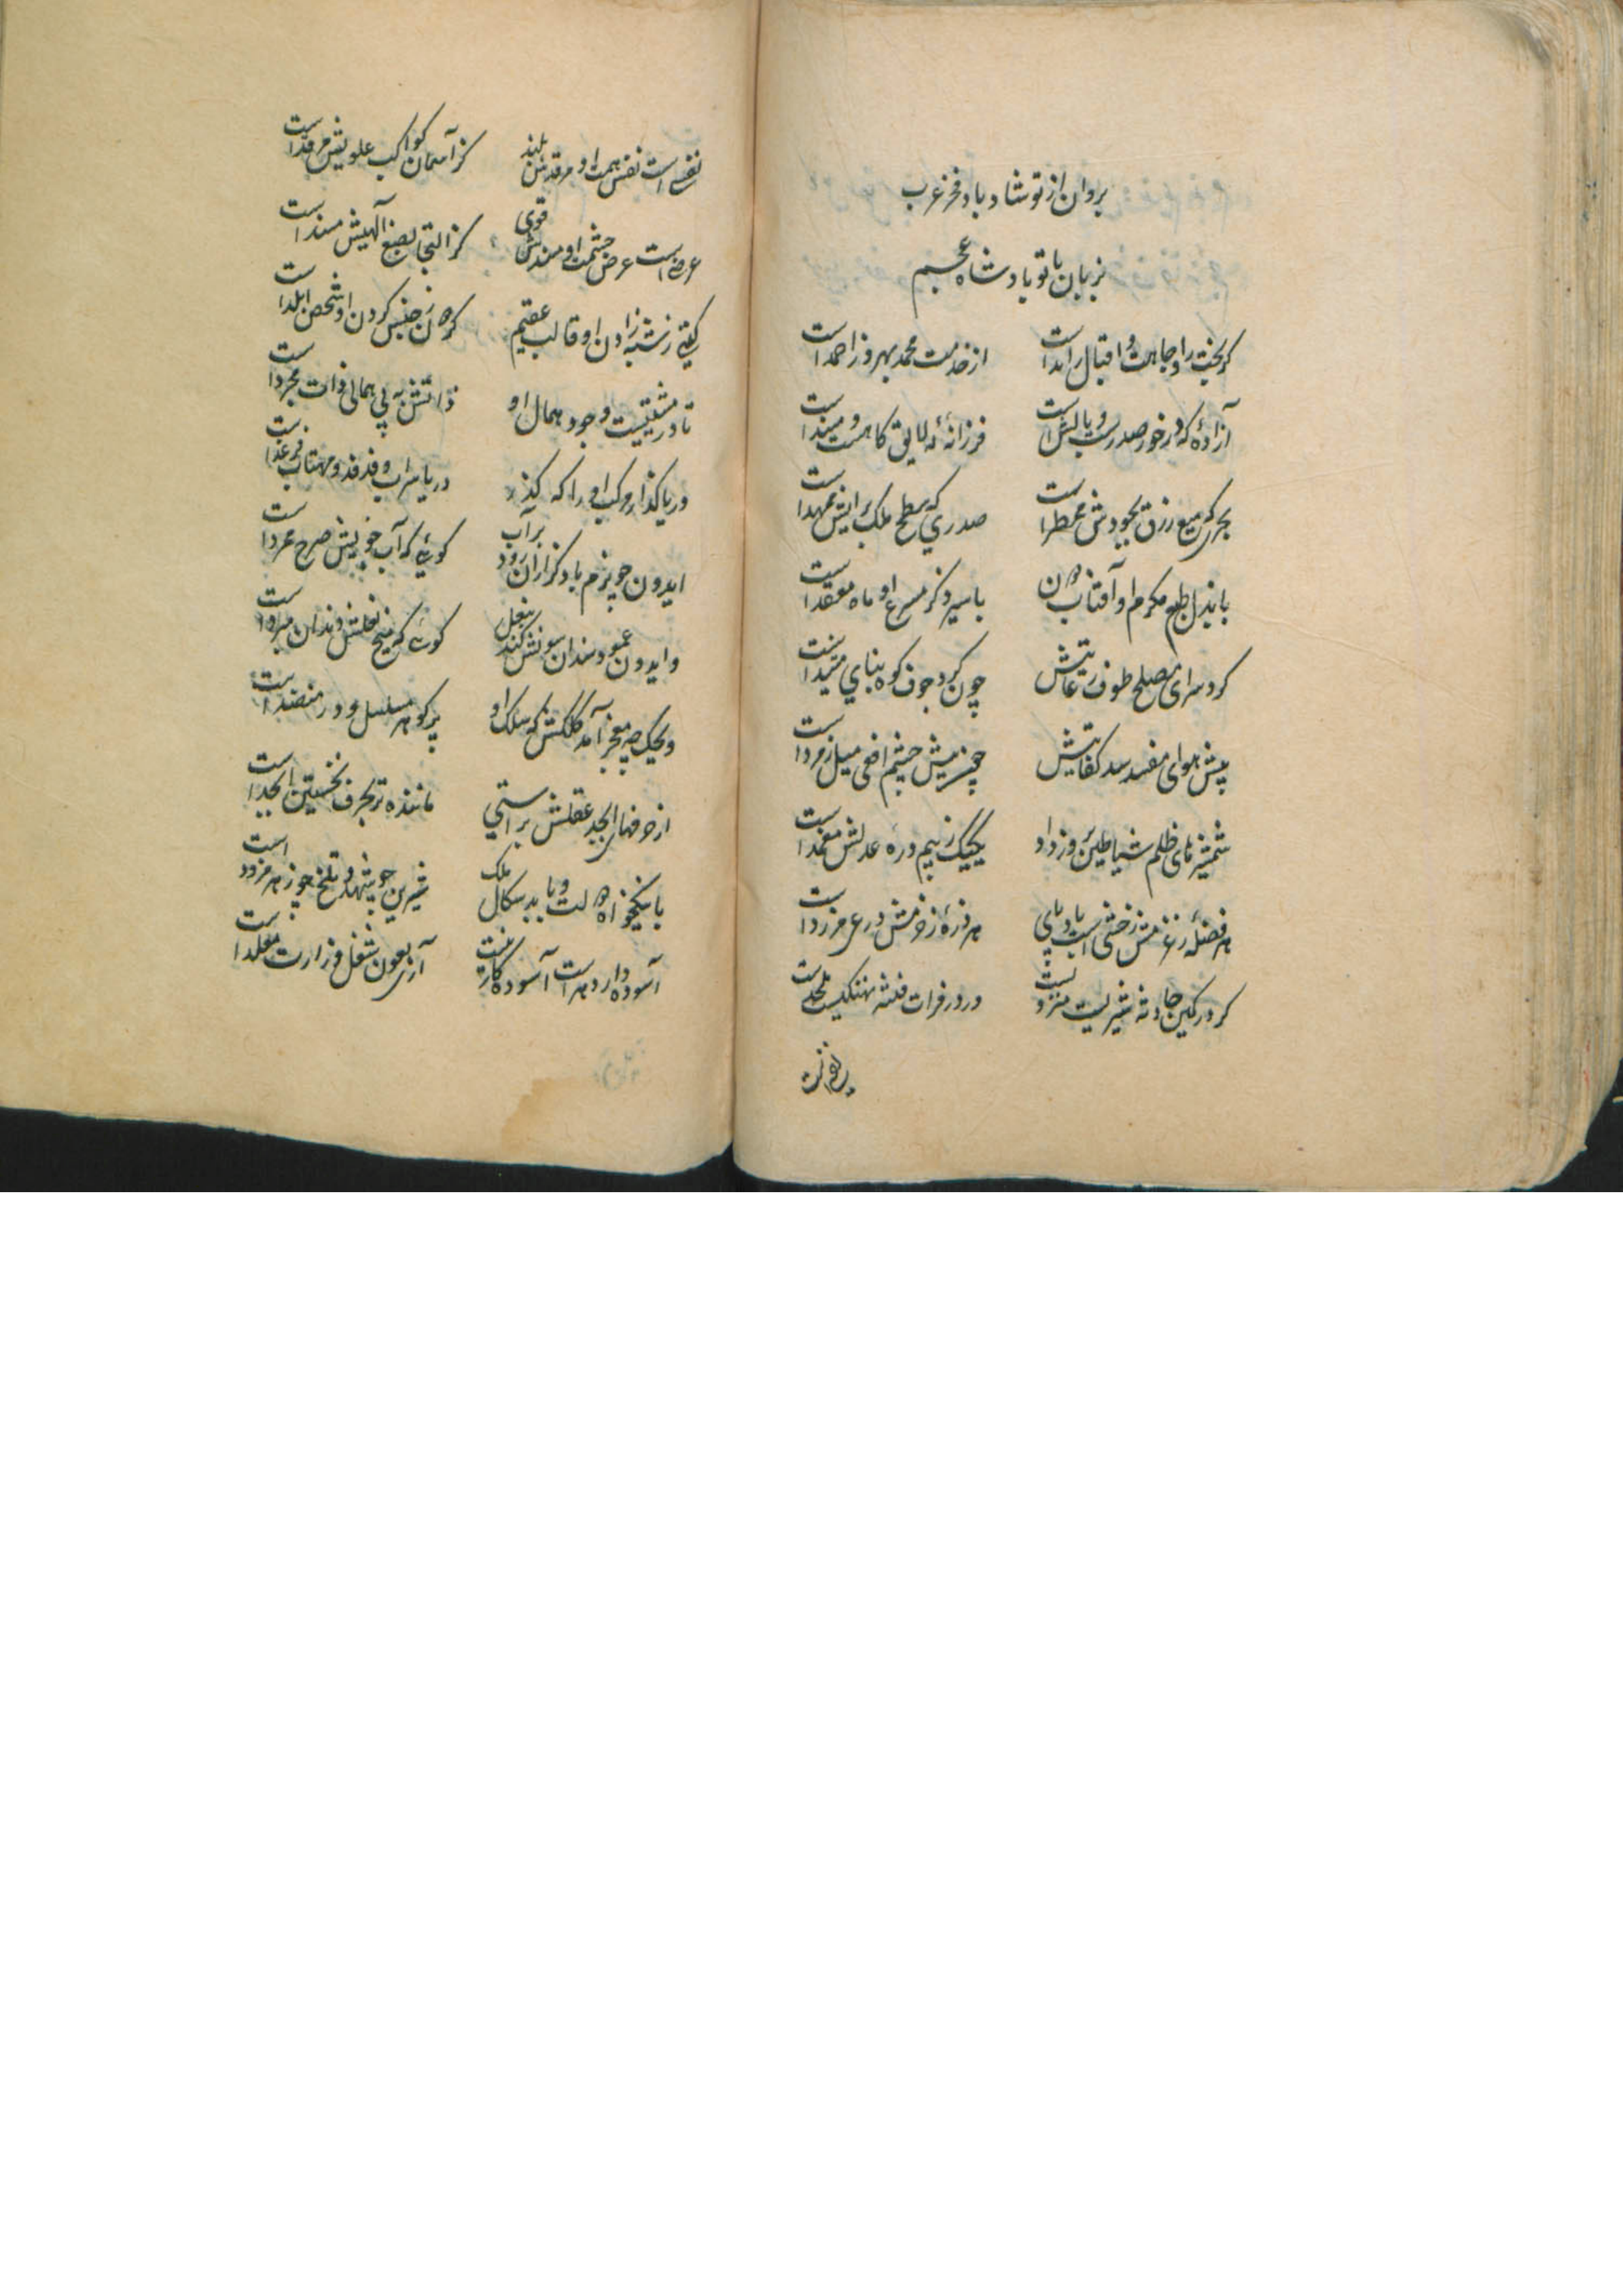 بروان از تو شاد باد فخر عرب
بزبان با تو باد شاه عجم
کر بخت را وجاهت و اقبال را یداست از خدمت محمد بهروز احمد است
آزادهٔ که در خور صدر است و بالش است فرزانهٔ که لایق کاهست و مسند است
بحری که منبع رزق بجودش مخطر است صدری که سطح ملک برایش ممهد است
با بذل طبع مکرم او آفتاب دون با سیر ذکر مسرع او ماه مقعد است
کرد سرای مصلح طوف رعایتش چون کرد جوف کوه بنای مشید است
پیش هوای مفسد سد کفایتش چونپیش چشم افعی میل زمرد است
شمشیرهای ظلم شیاطین وزداد یکیک زبیم درهٔ عدلش مغمد است
هر فضلهٔ ز عزمش رخشی است بادپای هر ذرهٔ ز حزمش درعی مزرد است
کر در کمین حادثه شیریست منزویست ور در فرات فتنه نهنگیست ملحد است
نفس است نفس همت او مرقدش بلند کز آسمان کواکب علویش مرقد است
عرض است عرض حشمت او مسندش قوی کز التجا بصنع الهیش مسند است
کیتی ز شبه زادن او قالب عقیم کردون ز جنس کردن او شخص ابلد است
تا در مشیتیست وجود همال او ذاتش به پی همالی ذات مجرد است
دریا کذار مرکب او را که کذر دریا سراب و فدفد و مهتاب فرغد است
ایدون چو بزم باد کزاران رود بر آب کوئی که آب خویش صرح ممرد است
وایدون عمود سندان سونش کند بنعل کوئی که میخ نعلش دندان مبرد است
ویحک چه معجز آمد کلکش که سلک او پر کوهر مسلسل و در منضد است
از حرفهای ابجد عقلش براستی ماننده‌تر بحرف نخستین ابجد است
با نیکخواه دولت و با بدسکال ملک شیرین چو شهد و تلخ چو زهر مزود است
آسوده دارد هر است آسوده کار نیست آری بعون شغل وزارت مقلد است